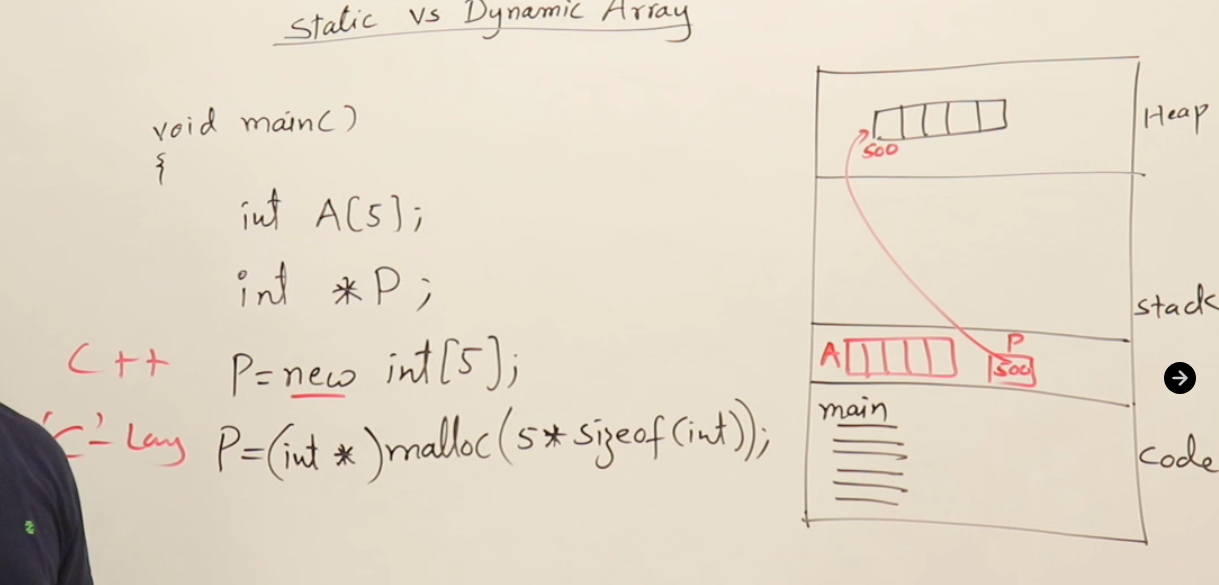 Static vs Dynamic Array
void main()
{
int A[5];
int *P;
C++ P=new int[5];
'C'-Lang P=(int *)malloc(5*sizeof(int));
Heap
500
stack
A P
500
main
code